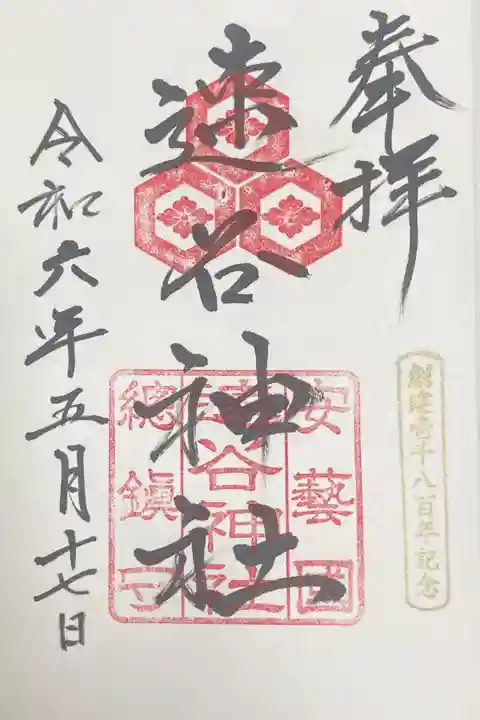 奉拝
創建壱千八百年記念
速谷神社
安藝國
速谷神社
總鎮守
令和六年五月十七日